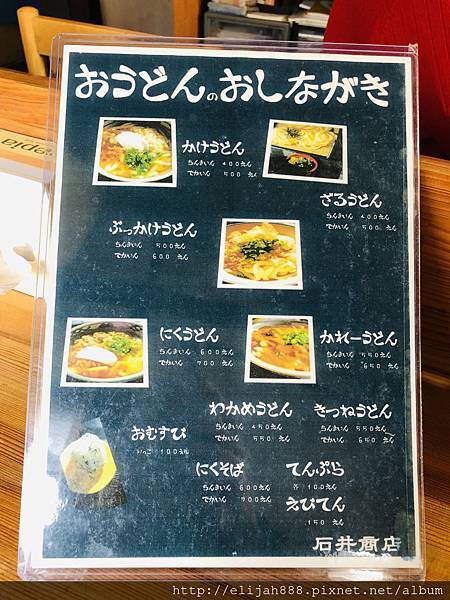 おうどんのおしながき
かけうどん
ちんまいん 400えん
でかいん 500えん
ざるうどん
ちんまいん 400えん
でかいん 500えん
ぶっかけうどん
ちんまいん 500えん
でかいん 600えん
にくうどん
ちんまいん 600えん
でかいん 700えん
かれーうどん
ちんまいん 550えん
でかいん 650えん
わかめうどん
ちんまいん 450えん
でかいん 550えん
きつねうどん
ちんまいん 550えん
でかいん 650えん
おむすび
100えん
にくそば
ちんまいん 600えん
でかいん 700えん
てんぷら
各 100えん
えびてん
150えん
石井商店
http://elijah888.pixnet.net/album